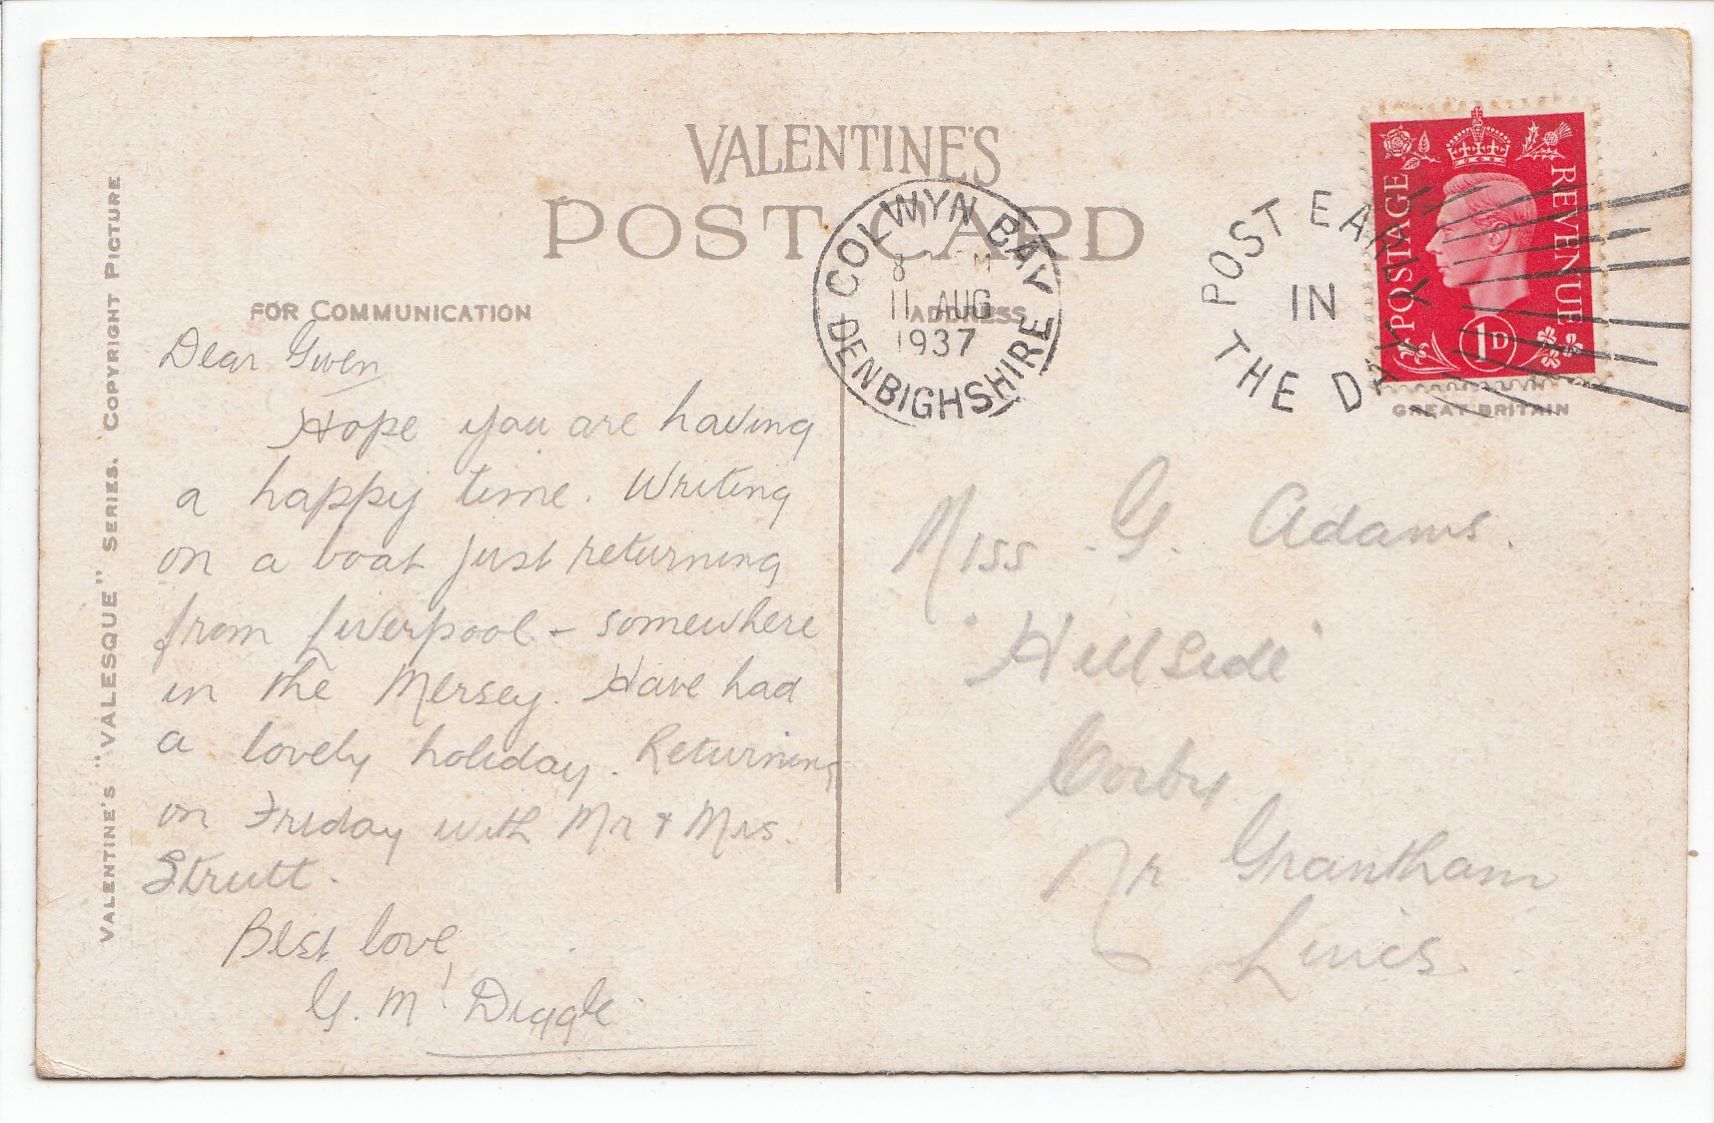 VALENTINE'S
POST CARD
FOR COMMUNICATION
ADDRESS
VALENTINE'S "VALESQUE" SERIES. COPYRIGHT PICTURE
Dear Gwen
Hope you are having
a happy time. Writing
on a boat just returning
from Liverpool – somewhere
in the Mersey. Have had
a lovely holiday. Returning
on Friday with Mr & Mrs.
Strutt.
Best love,
G. M. Diggle.
COLWYN BAY
8 M
11 AUG
1937
DENBIGHSHIRE
POST EARLY
IN
THE DAY
POSTAGE
REVENUE
1D
GREAT BRITAIN
Miss G. Adams.
"Hillside"
Corby
Nr Grantham
Lincs.